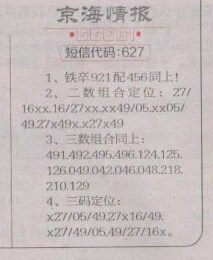 京海情报
短信代码:627
1、铁卒921配456同上!
2、二数组合定位：27/
16xx.16/27xx.xx49/05.xx05/
49.27x49x.x27x49
3、三数组合同上：
491.492.495.496.124.125.
126.049.042.046.048.218.
210.129
4、三码定位：
x27/05/49.27x16/49.
x27/49/05.49/27/16x。